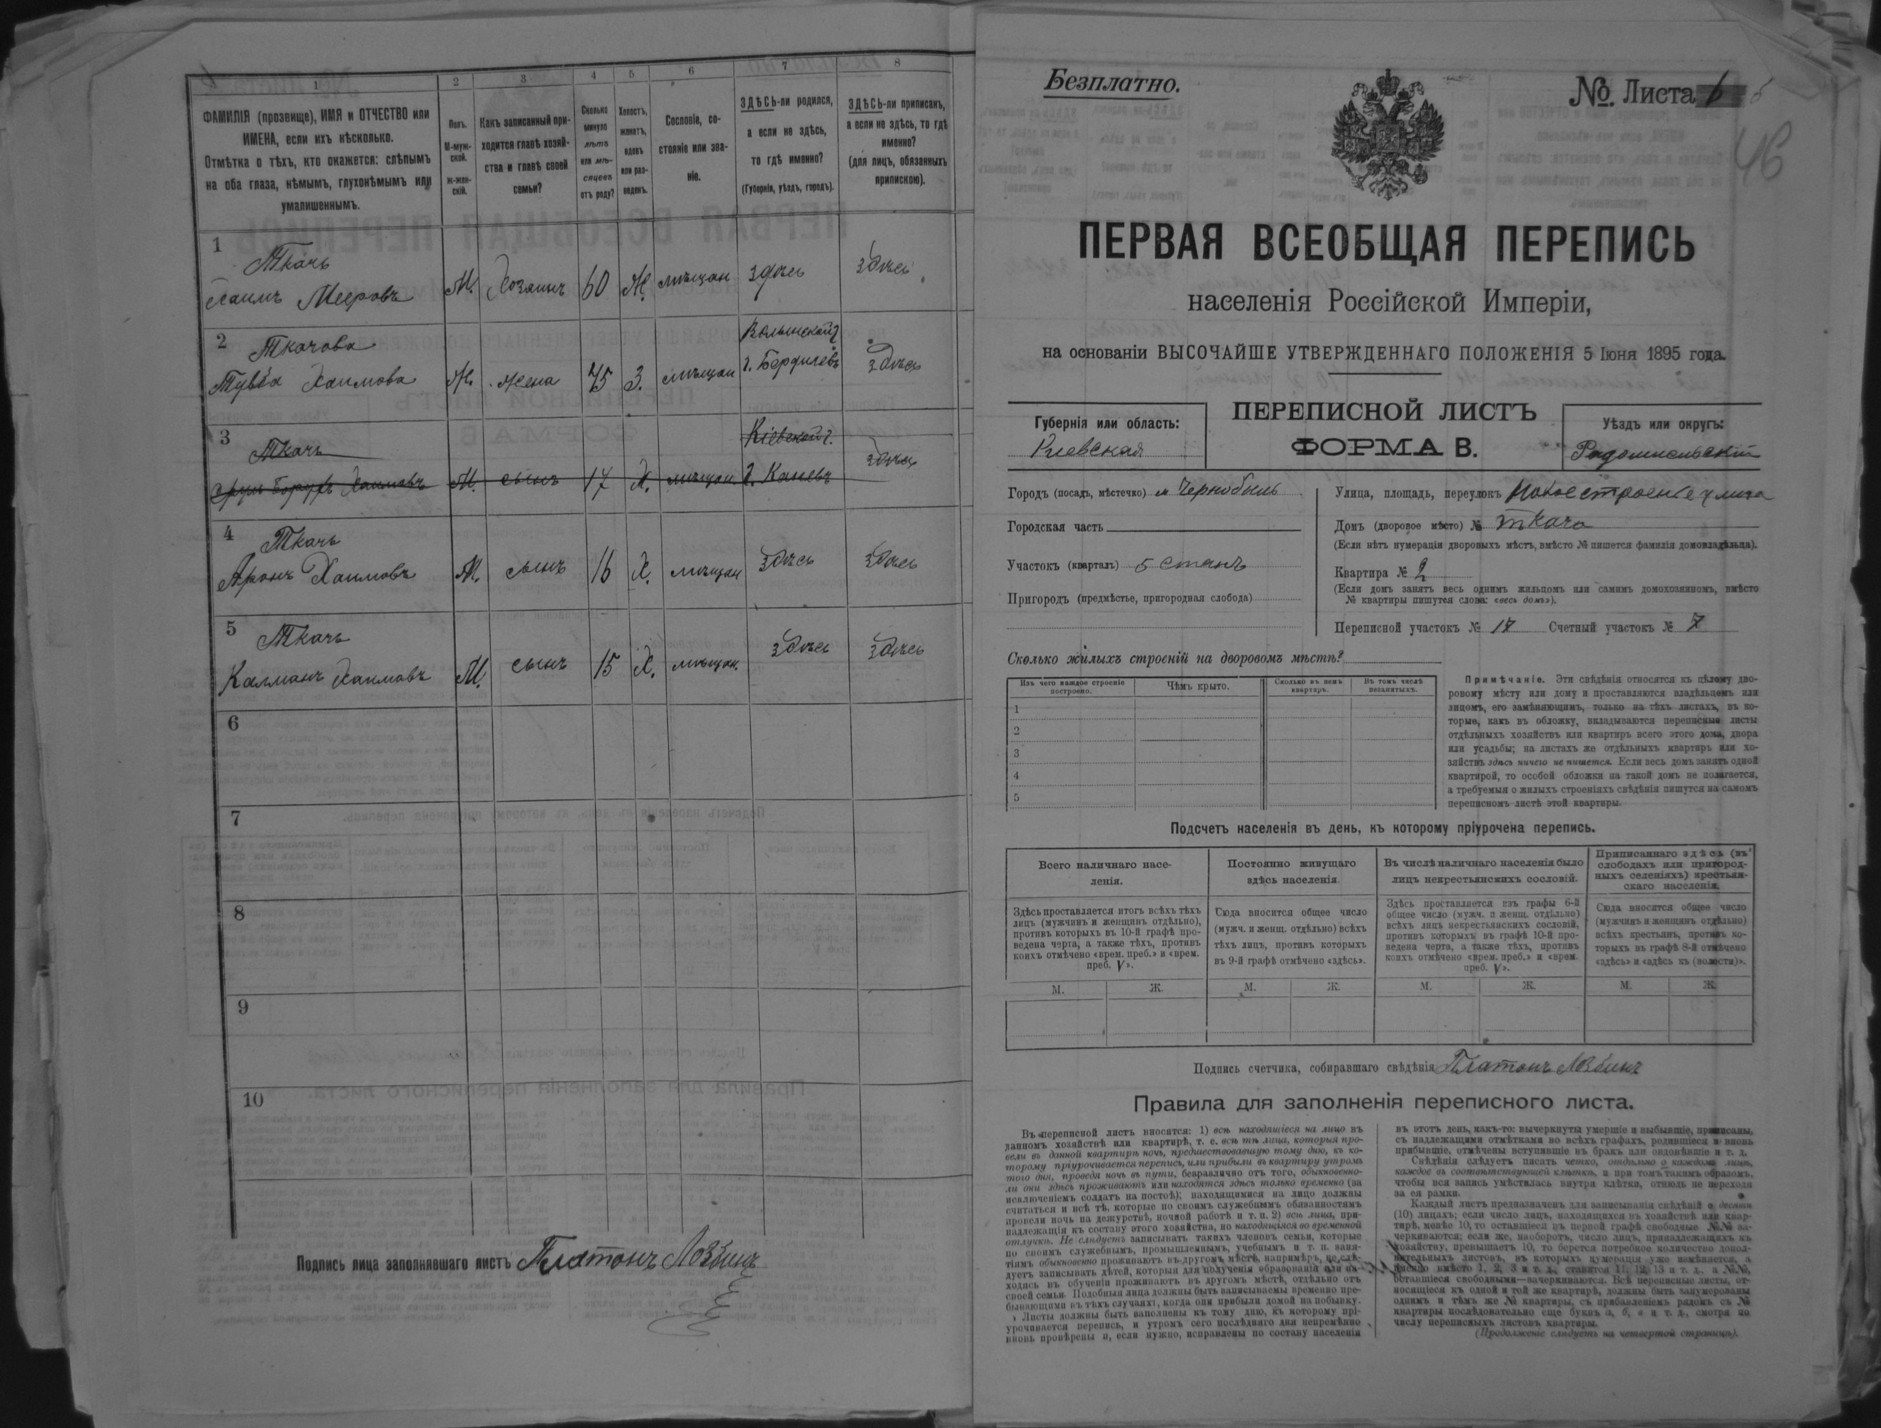 1
2
3
4
5
6
7
8
ФАМИЛІЯ (прозвище), ИМЯ и ОТЧЕСТВО или
ИМЕНА, если ихъ нѣсколько.
Отмѣтка о тѣхъ, кто окажется: слѣпымъ
на оба глаза, нѣмымъ, глухонѣмымъ или
умалишеннымъ.
Полъ.
М-муж-
ской.
Ж-жен-
скій.
Какъ записанный при-
ходится главѣ хозяй-
ства и главѣ своей
семьи?
Сколько
минуло
лѣтъ
или мѣ-
сяцевъ
отъ роду?
Холостъ,
женатъ,
вдовъ
или раз-
веденъ.
Сословіе, со-
стояніе или зва-
ніе.
ЗДѢСЬ-ли родился,
а если не здѣсь,
то гдѣ именно?
(Губернія, уѣздъ, городъ).
ЗДѢСЬ-ли приписанъ,
а если не здѣсь, то гдѣ
именно?
(для лицъ, обязанныхъ
припискою).
1
Ткачъ
Хаимъ Мееровъ М. Хозяинъ 60 Ж. мѣщан здѣсь здѣсь
2
Ткачова
Хаимова Ж. жена 45 З. мѣщан Волынской г. г. Бердичевъ здѣсь
3
Ткачъ
Борухъ Хаимовъ М. сынъ 17 Х. мѣщан. Кіевской г. г. Каневъ здѣсь
4
Ткачъ
Аронъ Хаимовъ М. сынъ 16 Х. мѣщан здѣсь здѣсь
5
Ткачъ
Калманъ Хаимовъ М. сынъ 15 Х. мѣщан. здѣсь здѣсь
6
7
8
9
10
Подпись лица заполнявшаго листъ Платонъ
Безплатно.
№ Листа 6
46
ПЕРВАЯ ВСЕОБЩАЯ ПЕРЕПИСЬ
населенія Россійской Имперіи,
на основаніи ВЫСОЧАЙШЕ УТВЕРЖДЕННАГО ПОЛОЖЕНІЯ 5 Іюня 1895 года.
Губернія или область:
Киевская
ПЕРЕПИСНОЙ ЛИСТЪ
ФОРМА В.
Уѣздъ или округъ:
Радомысльский
Городъ (посадъ, мѣстечко) м Чернобыль
Городская часть
Участокъ (кварталъ) 5 станъ
Пригородъ (предмѣстье, пригородная слобода)
Улица, площадь, переулокъ Новое строение улица
Домъ (дворовое мѣсто) № Ткача
(Если нѣтъ нумераціи дворовыхъ мѣстъ, вмѣсто № пишется фамилія домовладѣльца).
Квартира № 2
(Если домъ занятъ весь однимъ жильцомъ или самимъ домохозяиномъ, вмѣсто
№ квартиры пишутся слова: «весь домъ»).
Переписной участокъ № 17 Счетный участокъ № 7
Сколько жилыхъ строеній на дворовомъ мѣстѣ?
Изъ чего каждое строеніе
построено.
Чѣмъ крыто.
Сколько въ немъ
квартиръ.
Въ томъ числѣ
незанятыхъ.
1
2
3
4
5
Примѣчаніе. Эти свѣдѣнія относятся къ цѣлому дво-
ровому мѣсту или дому и проставляются владѣльцемъ или
лицомъ, его замѣняющимъ, только на тѣхъ листахъ, въ ко-
торые, какъ въ обложку, вкладываются переписные листы
отдѣльныхъ хозяйствъ или квартиръ всего этого дома, двора
или усадьбы; на листахъ же отдѣльныхъ квартиръ или хо-
зяйствъ здѣсь ничего не пишется. Если весь домъ занятъ одной
квартирой, то особой обложки на такой домъ не полагается,
а требуемыя о жилыхъ строеніяхъ свѣдѣнія пишутся на самомъ
переписномъ листѣ этой квартиры.
Подсчетъ населенія въ день, къ которому пріурочена перепись.
Всего наличнаго насе-
ленія.
Постоянно живущаго
здѣсь населенія.
Въ числѣ наличнаго населенія было
лицъ некрестьянскихъ сословій.
Приписаннаго здѣсь (въ
слободахъ или пригород-
ныхъ селеніяхъ) крестьян-
скаго населенія.
Здѣсь проставляется итогъ всѣхъ тѣхъ
лицъ (мужчинъ и женщинъ отдѣльно),
противъ которыхъ въ 10-й графѣ про-
ведена черта, а также тѣхъ, противъ
коихъ отмѣчено «врем. преб.» и «врем.
преб. V».
Сюда вносится общее число
(мужч. и женщ. отдѣльно) всѣхъ
тѣхъ лицъ, противъ которыхъ
въ 9-й графѣ отмѣчено «здѣсь».
Здѣсь проставляется изъ графы 6-й
общее число (мужч. и женщ. отдѣльно)
всѣхъ лицъ некрестьянскихъ сословій,
противъ которыхъ въ графѣ 10-й про-
ведена черта, а также тѣхъ, противъ
коихъ отмѣчено «врем. преб.» и «врем.
преб. V».
Сюда вносится общее число
(мужчинъ и женщинъ отдѣльно)
всѣхъ крестьянъ, противъ ко-
торыхъ въ графѣ 8-й отмѣчено
«здѣсь» и «здѣсь къ (волости)».
М. Ж. М. Ж. М. Ж. М. Ж.
Подпись счетчика, собиравшаго свѣдѣнія Платонъ
Правила для заполненія переписного листа.
Въ переписной листъ вносятся: 1) всѣ находящіеся на лицо въ
данномъ хозяйствѣ или квартирѣ, т. е. всѣ тѣ лица, которыя про-
вели въ данной квартирѣ ночь, предшествовавшую тому дню, къ ко-
торому пріурочивается перепись, или прибыли въ квартиру утромъ
того дня, проведя ночь въ пути, безразлично отъ того, обыкновенно-
ли они здѣсь проживаютъ или находятся здѣсь только временно (за
исключеніемъ солдатъ на постоѣ); находящимися на лицо должны
считаться и всѣ тѣ, которые по своимъ служебнымъ обязанностямъ
провели ночь на дежурствѣ, ночной работѣ и т. п. 2) всѣ лица, при-
надлежащія къ составу этого хозяйства, но находящіяся во временной
отлучкѣ. Не слѣдуетъ записывать такихъ членовъ семьи, которые
по своимъ служебнымъ, промышленнымъ, учебнымъ и т. п. заня-
тіямъ обыкновенно проживаютъ въ другомъ мѣстѣ, напримѣръ, не слѣ-
дуетъ записывать дѣтей, которыя для полученія образованія или на-
ходясь въ обученіи проживаютъ въ другомъ мѣстѣ, отдѣльно отъ
своей семьи. Подобныя лица должны быть записываемы временно пре-
бывающими въ тѣхъ случаяхъ, когда они прибыли домой на побывку.
Листы должны быть заполнены къ тому дню, къ которому прі-
урочивается перепись, и утромъ сего послѣдняго дня непремѣнно
вновь провѣрены и, если нужно, исправлены по составу населенія
въ этотъ день, какъ-то: вычеркнуты умершіе и выбывшіе, приписаны,
съ надлежащими отмѣтками во всѣхъ графахъ, родившіеся и вновь
прибывшіе, отмѣчены вступившіе въ бракъ или овдовѣвшіе и т. д.
Свѣдѣнія слѣдуетъ писать четко, отдѣльно о каждомъ лицѣ,
каждое въ соотвѣтствующей клѣткѣ, и при томъ такимъ образомъ,
чтобы вся запись умѣстилась внутри клѣтки, отнюдь не переходя
за ея рамки.
Каждый листъ предназначенъ для записыванія свѣдѣній о десяти
(10) лицахъ; если число лицъ, находящихся въ хозяйствѣ или квар-
тирѣ, менѣе 10, то оставшіеся въ первой графѣ свободные №№ за-
черкиваются; если же, наоборотъ, число лицъ, принадлежащихъ къ
хозяйству, превышаетъ 10, то берется потребное количество допол-
нительныхъ листовъ, въ которыхъ нумерація уже измѣняется, а
именно вмѣсто 1, 2, 3 и т. д., ставится 11, 12, 13 и т. д., а №№,
оставшіеся свободными—зачеркиваются. Всѣ переписные листы, от-
носящіеся къ одной и той же квартирѣ, должны быть занумерованы
однимъ и тѣмъ же № квартиры, съ прибавленіемъ рядомъ съ №
квартиры послѣдовательно еще буквъ а, б, в и т. д., смотря по
числу переписныхъ листовъ квартиры.
(Продолженіе слѣдуетъ на четвертой страницѣ).